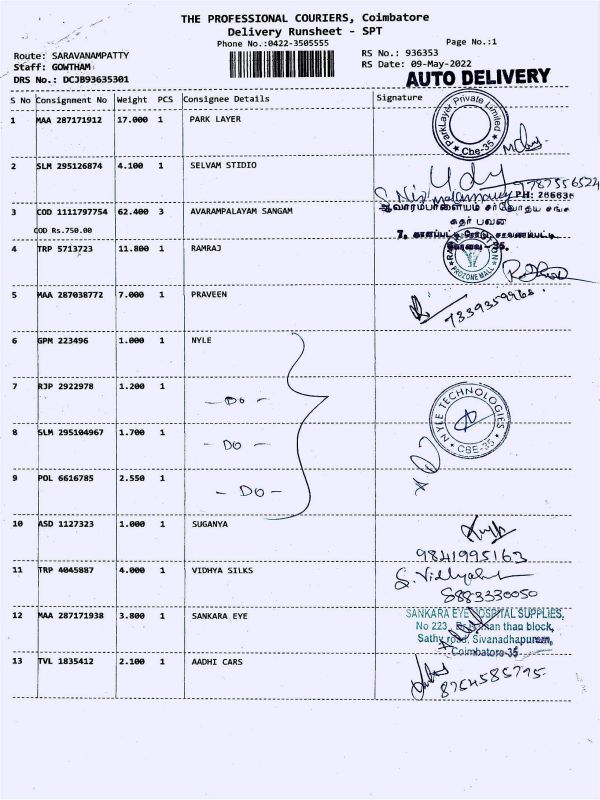 THE PROFESSIONAL COURIERS, Coimbatore
Delivery Runsheet - SPT
Phone No.:0422-3505555
Page No.:1
Route: SARAVANAMPATTY
RS No.: 936353
Staff: GOWTHAM
RS Date: 09-May-2022
DRS No.: DCJB93635301
AUTO DELIVERY
S No Consignment No Weight PCS Consignee Details Signature
1 MAA 287171912 17.000 1 PARK LAYER
ParkLayer Private Limited
* Cbe-35 *
2 SLM 295126874 4.100 1 SELVAM STIDIO
9787556524
PH: 266636
3 COD 1111797754 62.400 3 AVARAMPALAYAM SANGAM
COD Rs.750.00
4 TRP 5713723 11.800 1 RAMRAJ
PROZONE MALL
5 MAA 287038772 7.000 1 PRAVEEN
6 GPM 223496 1.000 1 NYLE
7 RJP 2922978 1.200 1 - Do -
NYLE TECHNOLOGIES
* CBE-35 *
8 SLM 295104967 1.700 1 - DO -
9 POL 6616785 2.550 1 - DO -
10 ASD 1127323 1.000 1 SUGANYA
9841995163
11 TRP 4045887 4.000 1 VIDHYA SILKS
8883330050
12 MAA 287171938 3.800 1 SANKARA EYE
SANKARA EYE HOSPITAL SUPPLIES,
No 223, than block,
Sathy road, Sivanadhapuram,
Coimbatore-35
13 TVL 1835412 2.100 1 AADHI CARS
8754585775